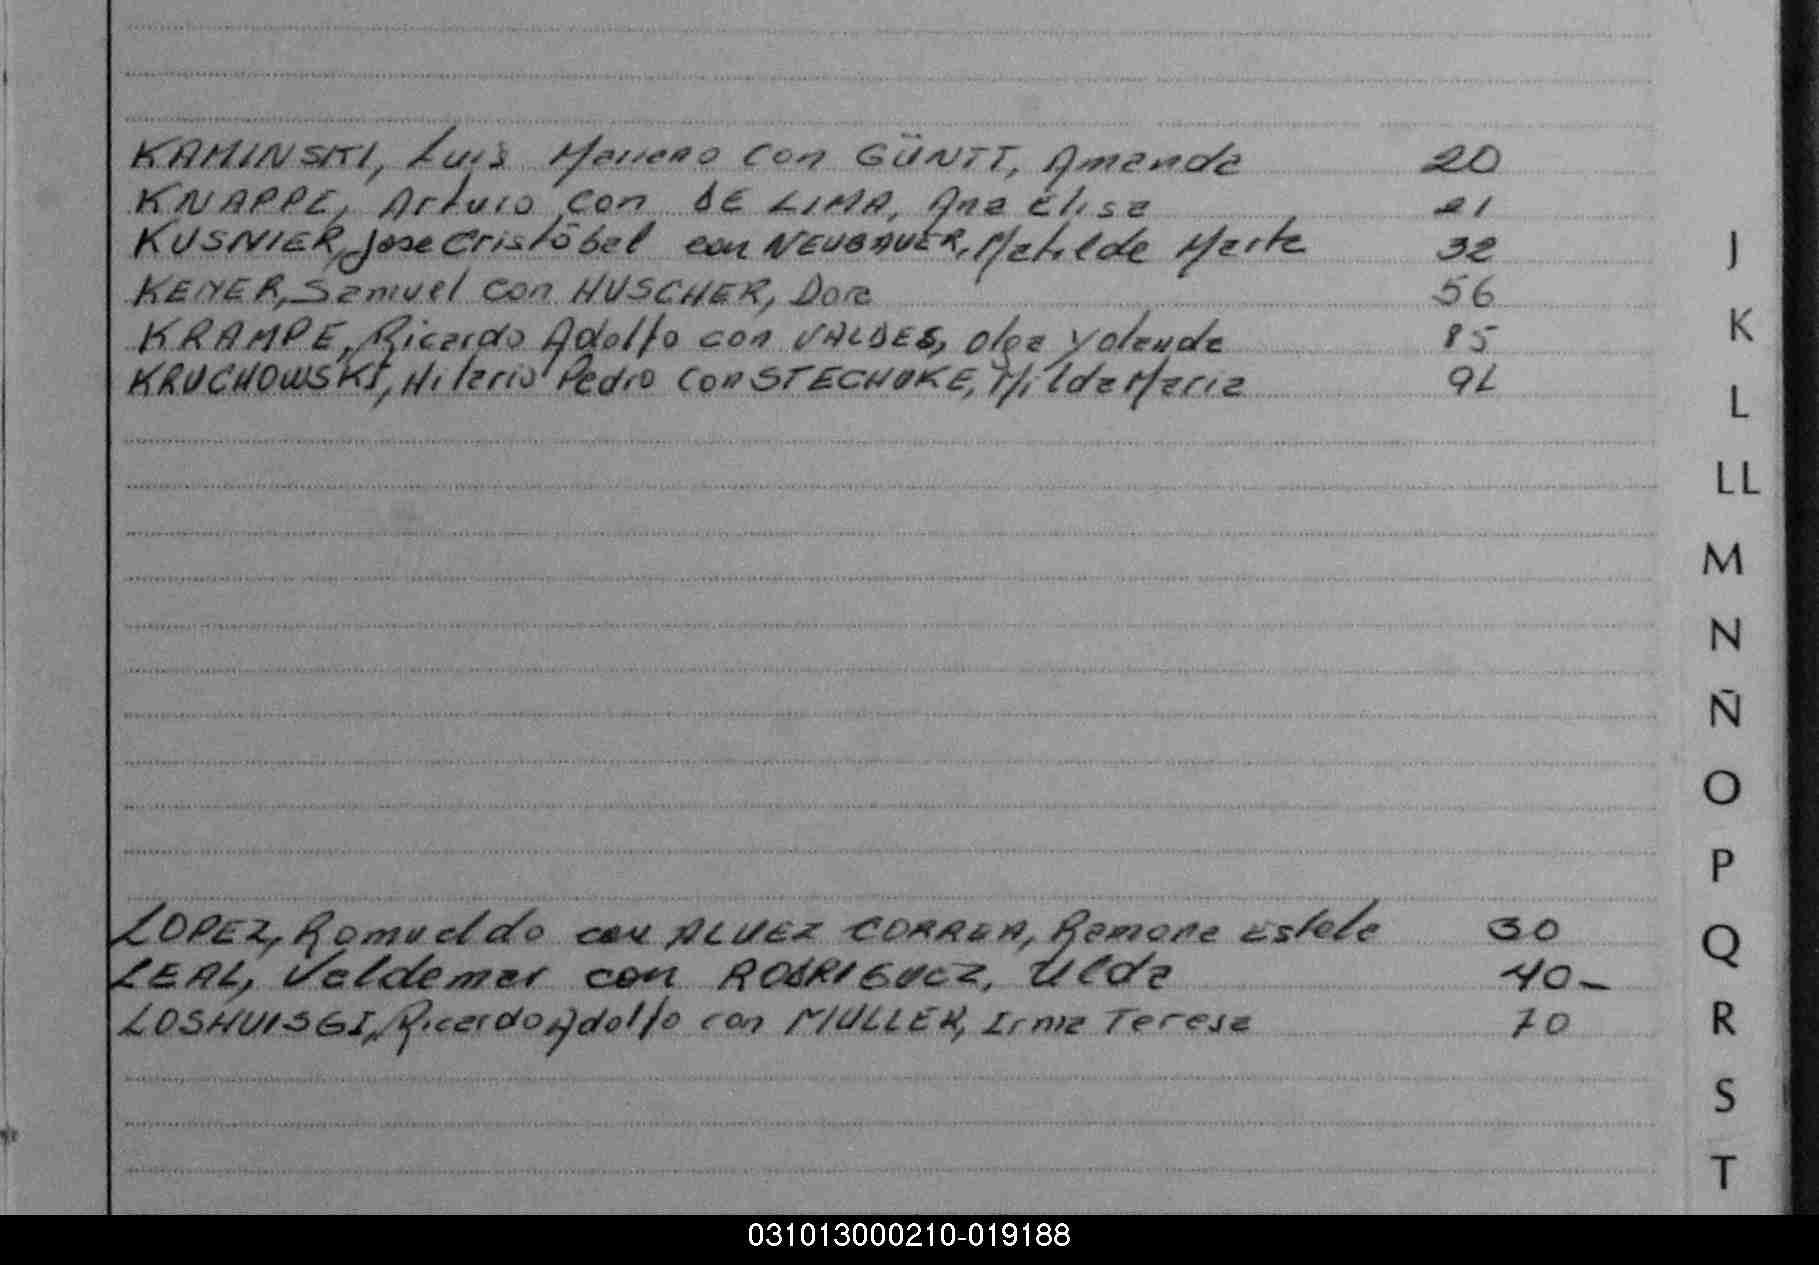 KAMINSKI, Luis Mariano con GÜNTT, Amanda 20
KNAPPE, Arturo con DE LIMA, Ana Elisa 21
KUSNIER, Jose Cristóbal con NEUBAUER, Matilde Marta 32
KENER, Samuel con HUSCHER, Dora 56
KRAMPE, Ricardo Adolfo con VALDES, Olga Yolanda 85
KRUCHOWSKI, Hilario Pedro con STECHUKE, Hilda Maria
LOPEZ, Romualdo con ALVEZ CORREA, Ramona Estela 30
LEAL, Valdemar con RODRIGUEZ, Ulda 40-
LOSHUISGI, Ricardo Adolfo con MULLER, Irma Teresa 70
J
K
L
LL
M
N
Ñ
O
P
Q
R
S
T
031013000210-019188